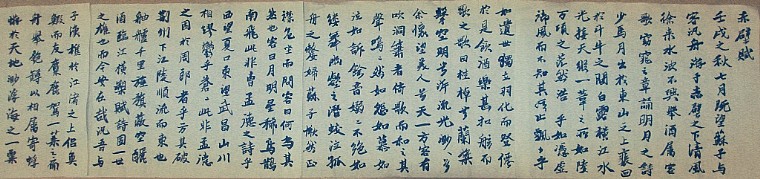 赤壁賦
壬戌之秋七月既望蘇子與
客泛舟游于赤壁之下清風
徐來水波不興舉酒屬客
歌窈窕之章誦明月之詩
少焉月出於東山之上裴回
於斗牛之間白露橫江水
光接天縱一葦之所如陵
萬頃之茫然浩乎如憑虛
御風而不知其所止飄飄乎
如遺世獨立羽化而登僊
於是飲酒樂甚扣舷而
歌之歌曰桂棹兮蘭槳
擊空明兮泝流光渺渺兮
余懷望美人兮天一方客有
吹洞簫者倚歌而和之其
聲嗚嗚然如怨如慕如
泣如訴餘音嫋嫋不絕如
縷舞幽壑之潛蛟泣孤
舟之嫠婦蘇子愀然正
襟危坐而問客曰何為其
然也客曰月明星稀烏鵲
南飛此非曹孟德之詩乎
西望夏口東望武昌山川
相繆鬱乎蒼蒼此非孟德
之困於周郎者乎方其破
荊州下江陵順流而東也
舳艫千里旌旗蔽空釃
酒臨江橫槊賦詩固一世
之雄也而今安在哉況吾與
子漁樵於江渚之上侶魚
蝦而友麋鹿駕一葉之扁
舟舉匏樽以相屬寄蜉
蝣於天地渺滄海之一粟